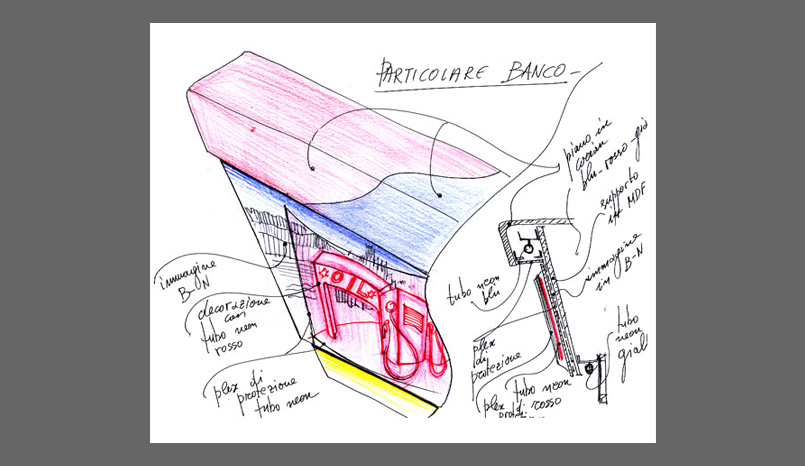 PARTICOLARE BANCO -
piano in
corian
blu-rosso-gia
supporto
in MDF
immagine
in B-N
tubo neon
blu
plex
di
protezione
tubo neon
rosso
plex di
tubo
neon
giall
immagine
B-N
decorazione
con
tubo neon
rosso
plex di
protezione
tubo neon